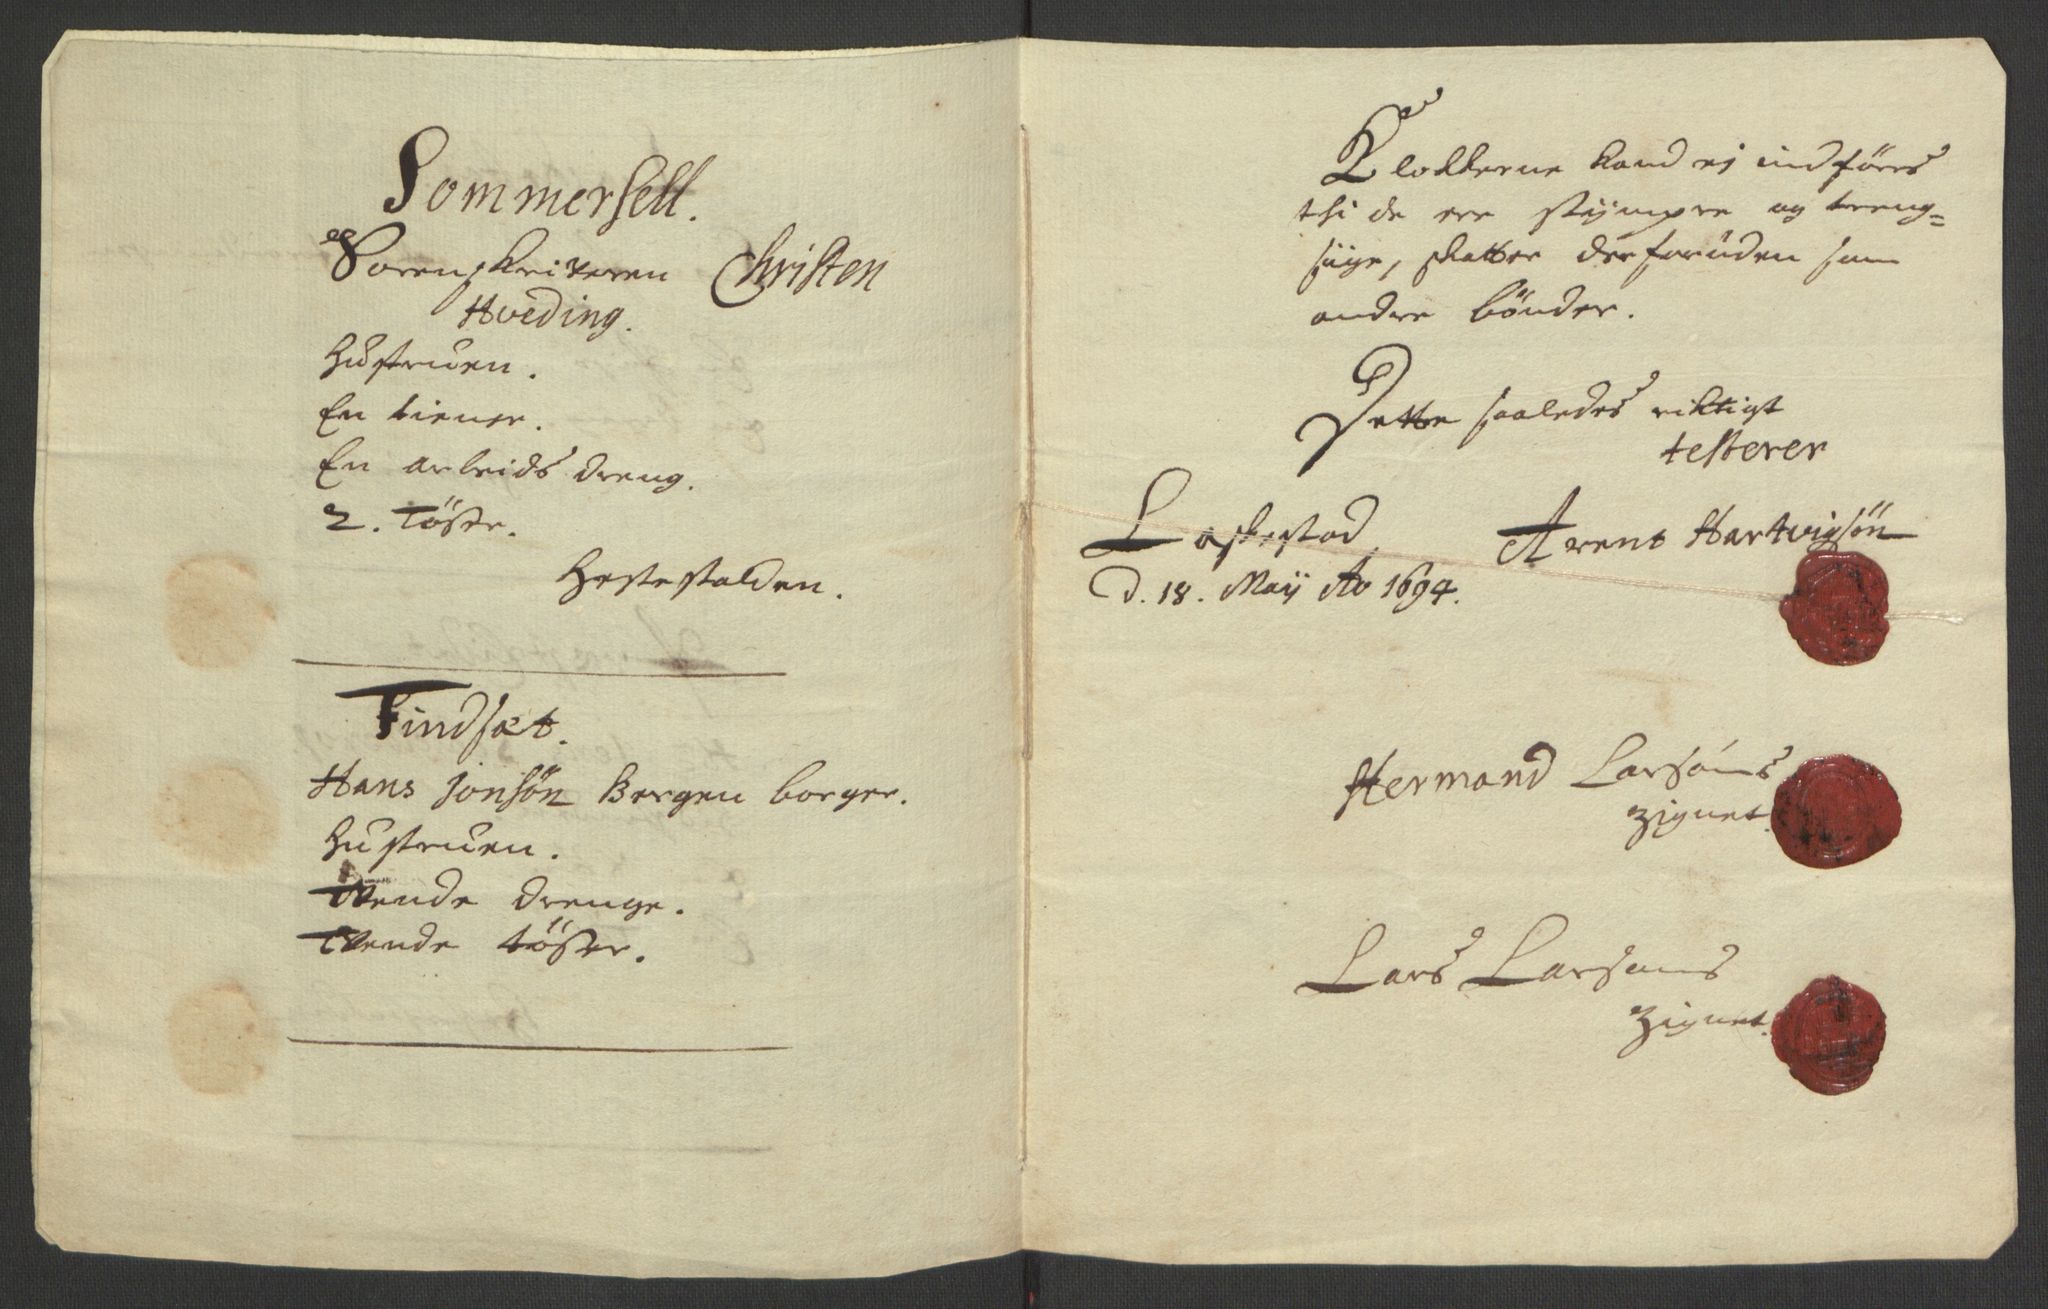 Sommersell.
Sorenskriveren Christen
Hveding.
Hustruen.
En tiener.
En arbeids dreng.
2. Tøser.
Hestestalden.
Findset.
Hans Jonsøn Bergen borger.
Hustruen.
Tvende drenge.
Tvende tøser.
Klokkerne kand ej indføres
thi de ere stÿmpre og treng=
siuge, skatter der foruden som
andre bønder.
Dette saaledes riktigt
testerer
Laskestad
d. 18. Maÿ Ao 1694.
Arent Hartvigsøn
Hermand Larsøns
zignet.
Lars Larsøns
zignet.